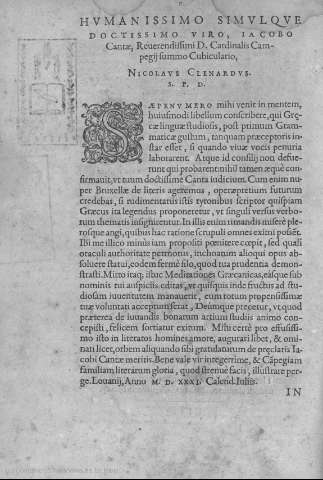 HVMANISSIMO SIMVLQVE
DOCTISSIMO VIRO, IACOBO
Cantæ, Reuerendissimi D. Cardinalis Cam-
pegij summo Cubiculario,
NICOLAVS CLENARDVS.
S. P. D.
SÆPENVMERO mihi venit in mentem,
huiusmodi libellum conscribere, qui Græ-
cæ linguæ studiosis, post primum Gram-
maticæ gustum, tanquam præceptoris in-
star esset, si quando viuæ vocis penuria
laborarent. Atque id consilij non defue-
runt qui probarent: mihi tamen æquè con-
firmauit, vt tuum doctissime Canta iudicium. Cum enim nu-
per Bruxellæ de literis ageremus, operæpretium futurum
credebas, si rudimentariis istis tyronibus scriptor quispiam
Græcus ita legendus proponeretur, vt singuli versus verbo-
rum thematis insignirentur. In illis enim rimandis miserè ple-
rosque angi, quibus hac ratione scrupuli omnes eximi possēt.
Ibi me illico minus iam propositi pœnitere cœpit, sed quasi
oraculi authoritate permotus, inchoatum alioqui opus ab-
soluere statui, eodem fermè filo, quod tua prudentia demon-
strasti. Mitto itaq; libuc Meditationes Græcanicas, easque sub
nominis tui auspiciis æditas, vt quisquis inde fructus ad stu-
diosam iuuentutem manauerit, eum totum propensissimæ
tuæ voluntati acceptum ferat, Deúmque precetur, vt quod
præterea de iuuandis bonarum artium studiis animo con-
cepisti, felicem sortiatur exitum. Mihi certè pro effusissi-
mo isto in literatos homines amore, augurari libet, & omi-
nari licet, orbem aliquando sibi gratulaturum de præclaris Ia-
cobi Cantæ meritis. Bene vale vir integerrime, & Cāpegiam
familiam literarum gloria, quod strenuè facis, illustrare per-
ge. Louanij, Anno M. D. XXXI. Calend. Iuliis.
IN